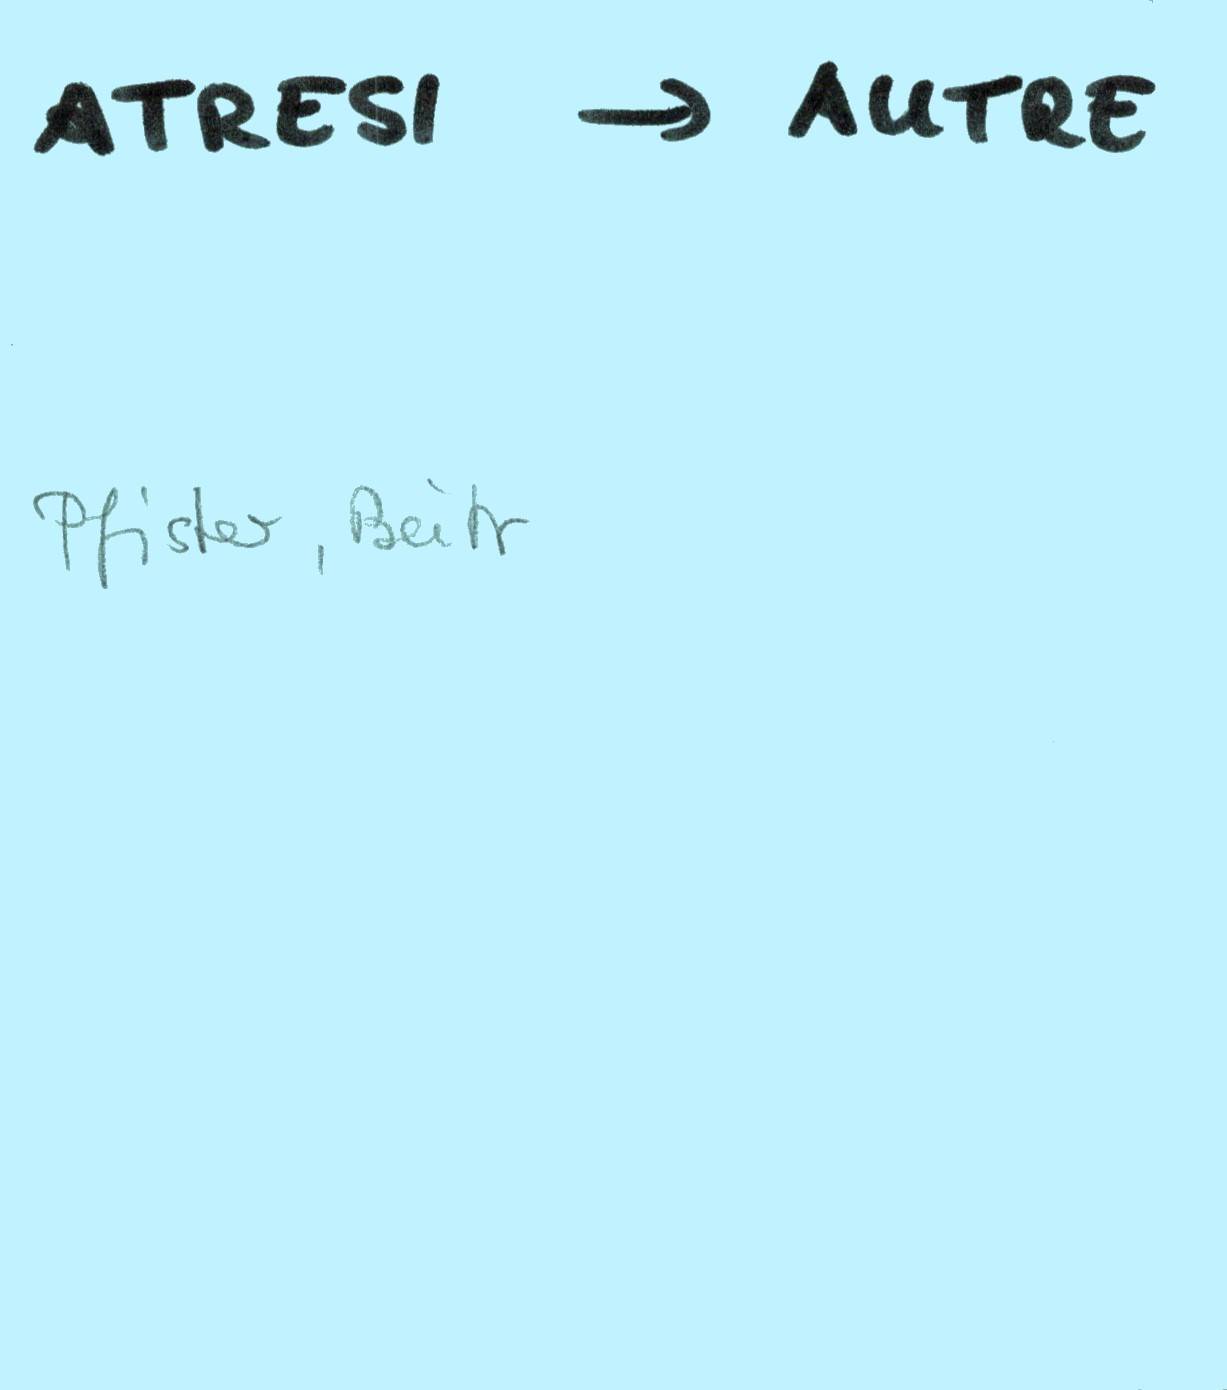 ATRESI → AUTRE
Pfister, Beitr